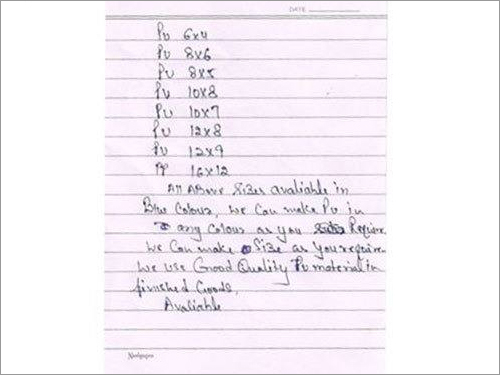 DATE
Pu 6x4
Pu 8x6
Pu 8x5
Pu 10x8
Pu 10x7
Pu 12x8
Pu 12x9
PP 16x12
All Above Sizes avaliable in
Blue Colour, we can make Pu in
any Colour as you Require
We Can make Size as you require
we use Good Quality Pu material in
finished Goods,
Avaliable